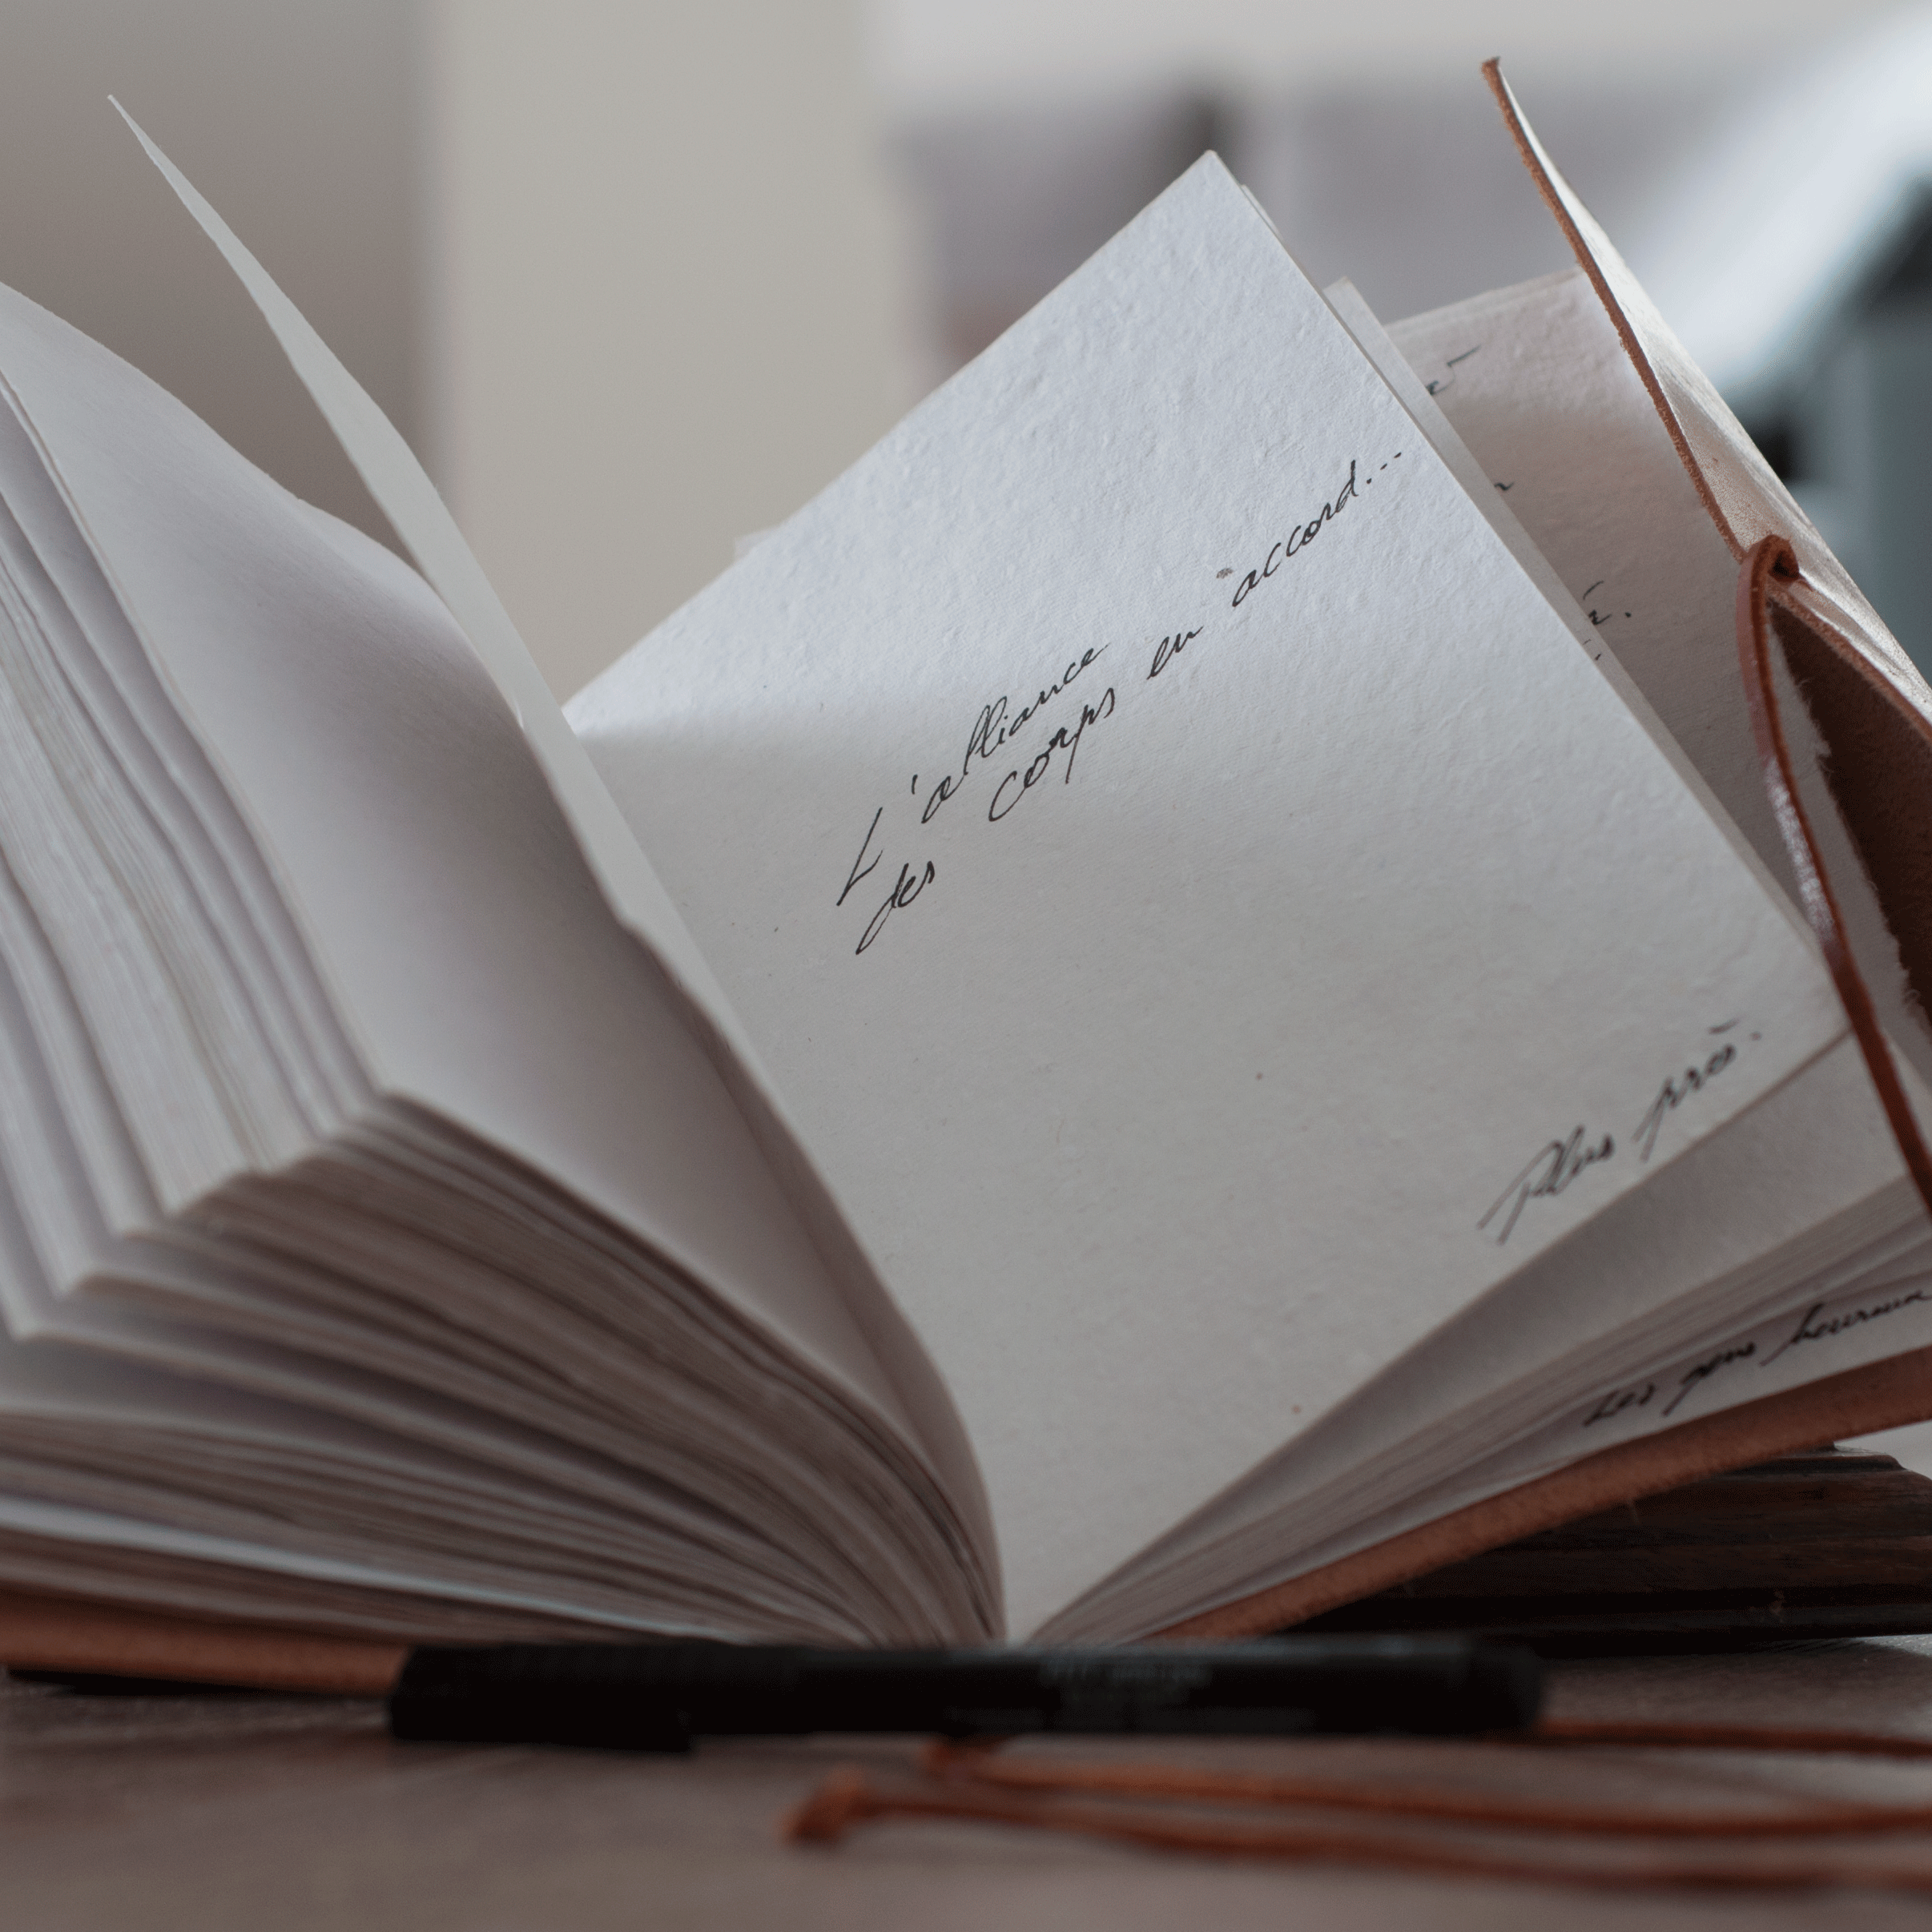 L'alliance
des corps en accord...
Plus près.
Les gens heureux